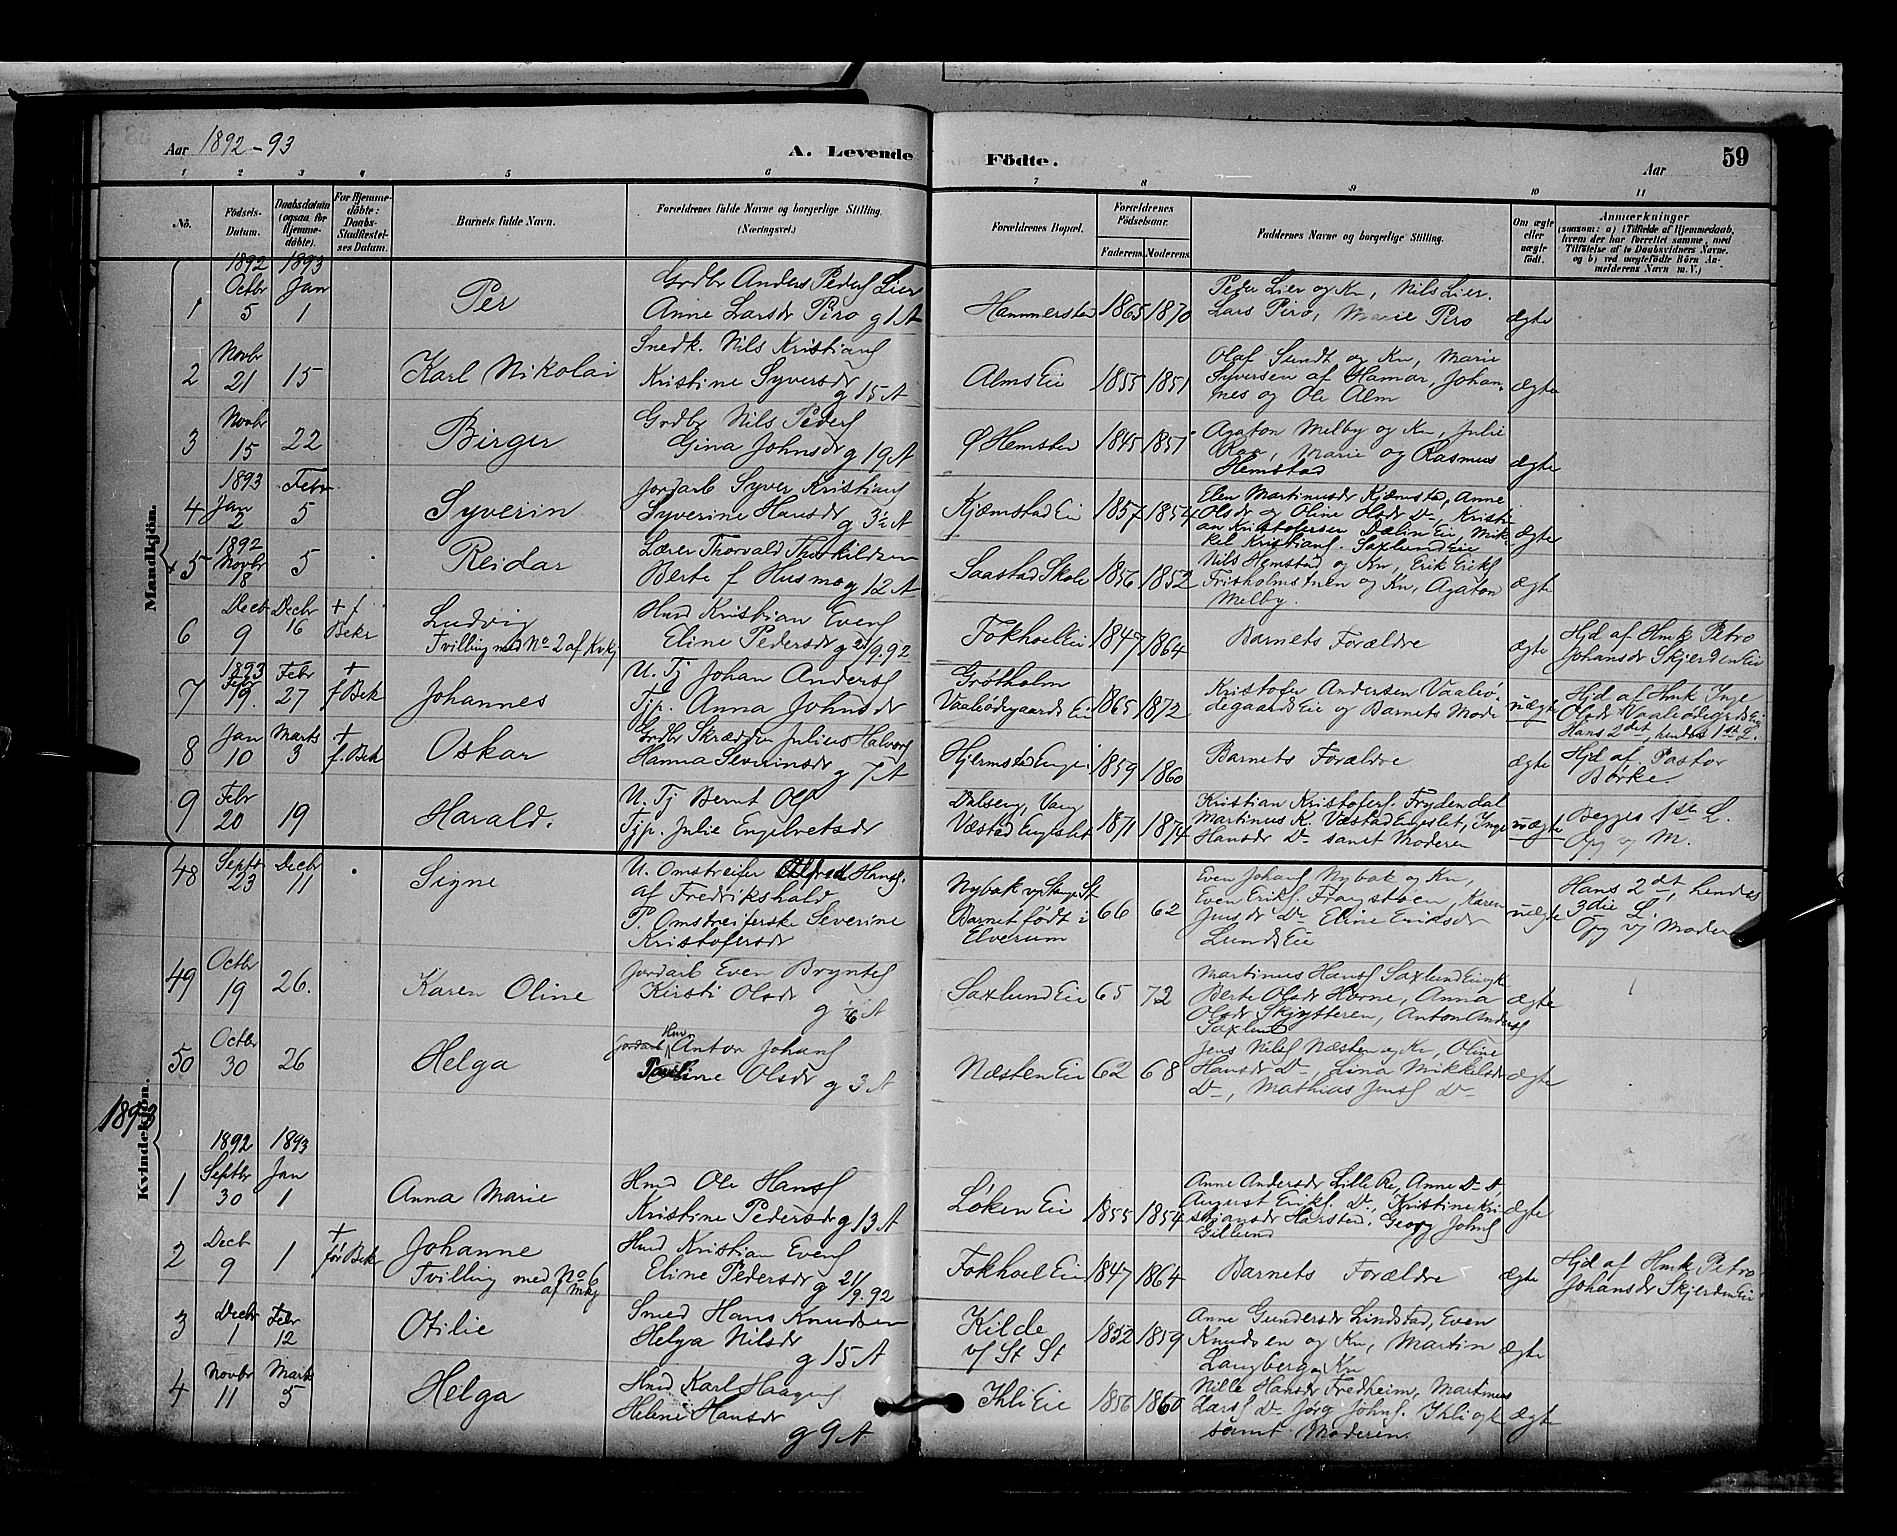 Aar 1892-93
A. Levende
Födte.
Aar
59
1 2 3 4 5 6 7 8 9 10 11
No.
Födsels-Datum.
Daabsdatum (ogsaa for Hjemme-döbte).
For Hjemme-döbte: Daabs-Stadfæstel-ses Datum.
Barnets fulde Navn.
Forældrenes fulde Navne og borgerlige Stilling. (Næringsvei.)
Forældrenes Bopæl.
Forældrenes Födselsaar.
Faderens. Moderens.
Faddernes Navne og borgerlige Stilling.
Om ægte eller uægte födt.
Anmærkninger
(saasom: a) i Tilfælde af Hjemmedaab, hvem der har forrettet samme, med Tilföielse af to Daabsvidners Navne, og b) ved uægtefödte Börn An-melderens Navn m. V.)
Mandkjön.
1892 1893
1 Octbr 5 Jan 1 Per
Grdbr Anders Peders Lier
Anne Larsdr Piro g 1 A
Hammerstad 1865 1870
Peder Lier og Kn, Nils Lier.
Lars Piro, Marie Piro
ægte
2 Novbr 21 15 Karl Nikolai
Snedk. Nils Kristians
Kristine Syversdr g 15 A
Alms Eie 1855 1851
Olaf Sundt og Kn, Marie
Syversen af Hamar, Johan-
nes og Ole Alm
ægte
3 Novbr 15 22 Birger
Grdbr Nils Peders
Gina Johnsdr g 19 A
Ø Hemstad 1845 1851
Agaton Melby og Kn, Julie
Roa, Marie og Rasmus
Hemstad
ægte
1893 Febr
4 Jan 2 5 Syverin
Jordarb Syver Kristians
Syverine Hansdr g 3½ A
Kjæmstad Eie 1857 1854
Elen Martinusdr Kjæmstad, Anne
Olsdr og Oline Olsdr Do, Kristi-
an Kristofersen Dælin Eie Mik-
kel Kristians. Saxlund Eie
ægte
1892
5 Novbr 18 5 Reidar
Lærer Thorvald Thorkildsen
Berte f Husmo g 12 A
Saastad Skole 1856 1852
Nils Hemstad og Kn, Erik Eriks
Frisholmstuen og Kn, Agaton
Melby.
ægte
6 Decb 9 Decbr 16 + f Bekr
Ludvig
Tvilling med No 2 af Kvkj
Hmd Kristian Evens
Eline Pedersdr g 21/9.92
Fokhoel Eie 1847 1864
Barnets Forældre
ægte
Hjd af Hmk Petro
Johansdr Skjerden Eie
1893
7 Febr 19. Febr 27 + f Bek
Johannes
U. Tj Johan Anders
Tjp. Anna Johnsdr
Grøtholm
Vaaleødegaards Eie 1865 1872
Kristofer Andersen Vaaleø-
degaards Eie og Barnets Mode
uægte
Hjd af Hmk Inge
Olsdr Vaaleødegrds Eie
Hans 2det, hendes 1ste L.
8 Jan 10 Marts 3 + f. Bek
Oskar
Grdbr Skrædder Julius Halvors
Hanna Severinsdr g 7 A
Hjermstad Enge 1859 1860
Barnets Forældre
ægte
Hjd af Pastor
Børke.
9 Febr 20 19 Harald.
U. Tj Bernt Ols
Tjp. Julie Engebretsdr
Dalseng, Vang
Væstad Engeslet 1871 1874
Kristian Kristofers. Frydendal
Martinus K. Væstad Engeslet, Inge
Hansdr Do samt Moderen
uægte
Begges 1ste L.
Opg v M.
Kvindekjön.
48 Septr 23 Decbr 11 Signe
U. Omstreifer Alfred Hans.
af Fredrikshald
P. Omstreiferske Severine
Kristofersdr
Nybak v/ Stange St
Barnet født i
Elverum
66 62
Even Johans Nybak og Kn,
Even Eriks. Frangstøen, Karen
Jensdr Do Eline Eriksdr
Lunds Eie
uægte
Hans 2det, hendes
3die L.
Opg v/ Moder
49 Octbr 19 26. Karen Oline
Jordarb Even Bryntes
Kirsti Olsdr
g 1/6 A
Saxlund Eie 65 72
Martinus Hans Saxlund Eie og k
Berte Olsdr Horne, Anna
Olsdr Skjytteren, Anton Anders
Saxlund
ægte
50 Octbr 30 26 Helga
Jordarb Hmd Anton Johans
Pauline Olsdr g 3 A
Næsten Eie 62 68
Jens Nils Næsten og Kn, Oline
Hansdr Do, Lina Mikkelsdr
Do, Mathias Jens Do
ægte
1893
1892 1893
1 Septbr 30 Jan 1 Anna Marie
Hmd Ole Hans
Kristine Pedersdr g 13 A
Løken Eie 1855 1854
Anne Andersdr Lille Re, Anne Do Do,
August Eriks. Do, Kristine Kri-
stiansdr Harstad, Georg Johns
Gillund
ægte
2 Decb 9 1 + før Bekr
Johanne
Tvilling med No 6
af Mkj
Hmd Kristian Evens
Eline Pedersdr g 21/9.92
Fokhoel Eie 1847 1864
Barnets Forældre
ægte
Hjd af Hmk Petro
Johansdr Skjerden Eie
3 Decbr 1 Febr 12 Otilie
Smed Hans Knudsen
Helga Nilsdr
g 15 A
Kilde
v/ St St
1852 1859
Anne Gundersdr Lindstad, Even
Knudsen og Kn, Martin
Langberg og Kn
ægte
4 Novbr 11 Marts 5 Helga
Hmd Karl Haagens
Helene Hansdr
g 9 A
Ihli Eie 1856 1860
Nille Hansdr Fredheim, Martinus
Lars Do Jørg Johns. Ihli og k
samt Moderen.
ægte